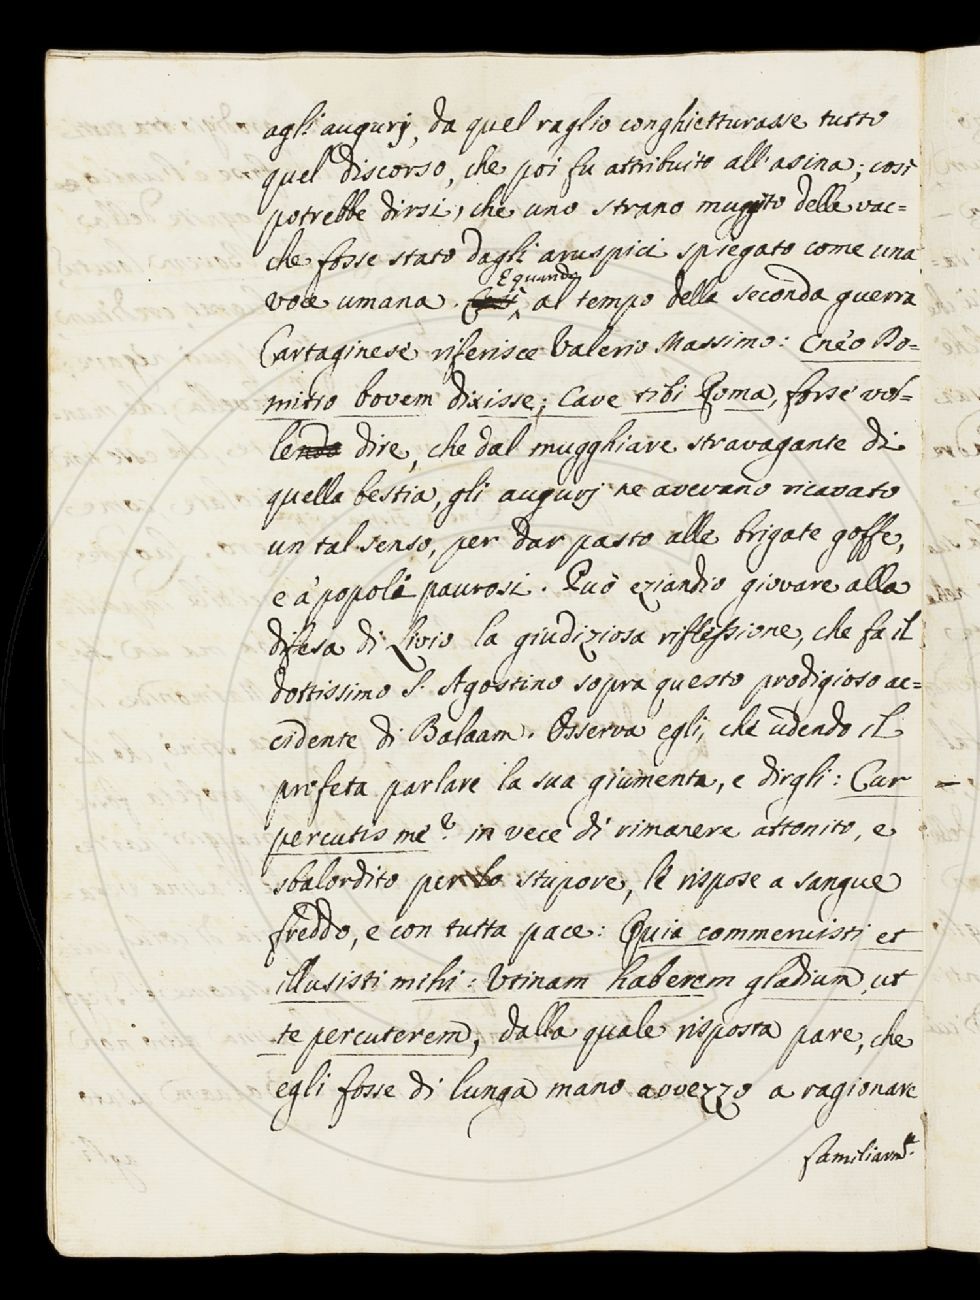 agli augurj, da quel raglio conghietturasse tutto
quel discorso, che poi fu attribuito all'asina; così
potrebbe dirsi, che uno strano muggito delle vac=
che fosse stato dagli aruspici spiegato come una
voce umana. E quando al tempo della seconda guerra
Cartaginese riferisce Valerio Massimo: Cneo Do=
mitio bovem dixisse; Cave tibi Roma, forse vol=
lenda dire, che dal mugghiare stravagante di
quella bestia, gli augurj ne avevano ricavato
un tal senso, per dar pasto alle brigate goffe,
e a' popoli paurosi. Può eziandio giovare alla
difesa di Livio la giudiziosa riflessione, che fa il
dottissimo S. Agostino sopra questo prodigioso ac=
cidente di Balaam. Osserva egli, che udendo il
profeta parlare la sua giumenta, e dirgli: Cur
percutis me? in vece di rimanere attonito, e
sbalordito per lo stupore, le rispose a sangue
freddo, e con tutta pace: Quia commeruisti et
illusisti mihi: Utinam haberem gladium, ut
te percuterem, dalla quale risposta pare, che
egli fosse di lunga mano avvezzo a ragionare
familiarmte.